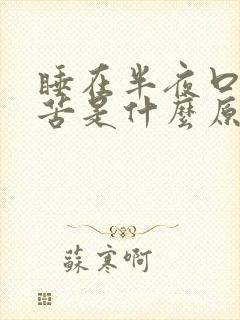 睡在半夜口
苦是什麼原
蘇寒啊